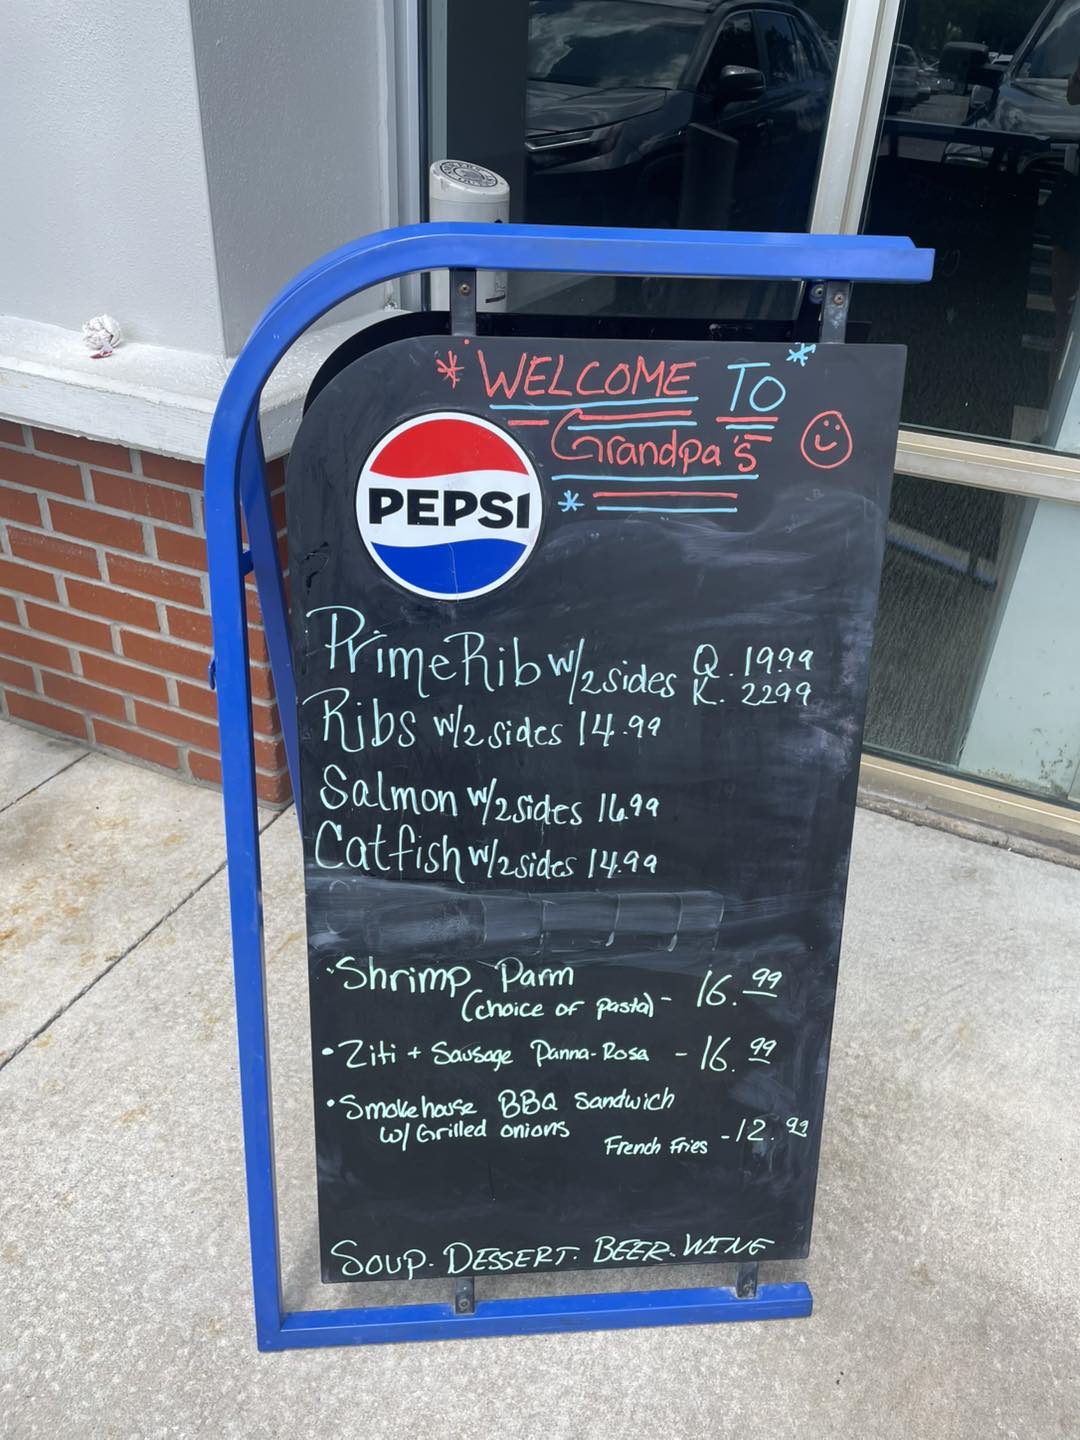 * WELCOME TO *
Grandpa's
*
PEPSI
Prime Rib w/2 sides Q. 19.99
K. 22 99
Ribs w/2 sides 14.99
Salmon w/2 sides 16.99
Catfish w/2 sides 14.99
• Shrimp Parm
(choice of pasta) - 16.99
• Ziti + Sausage Panna-Rosa - 16.99
• Smokehouse BBQ Sandwich
w/ Grilled onions
French Fries - 12.99
SOUP. DESSERT. BEER. WINE